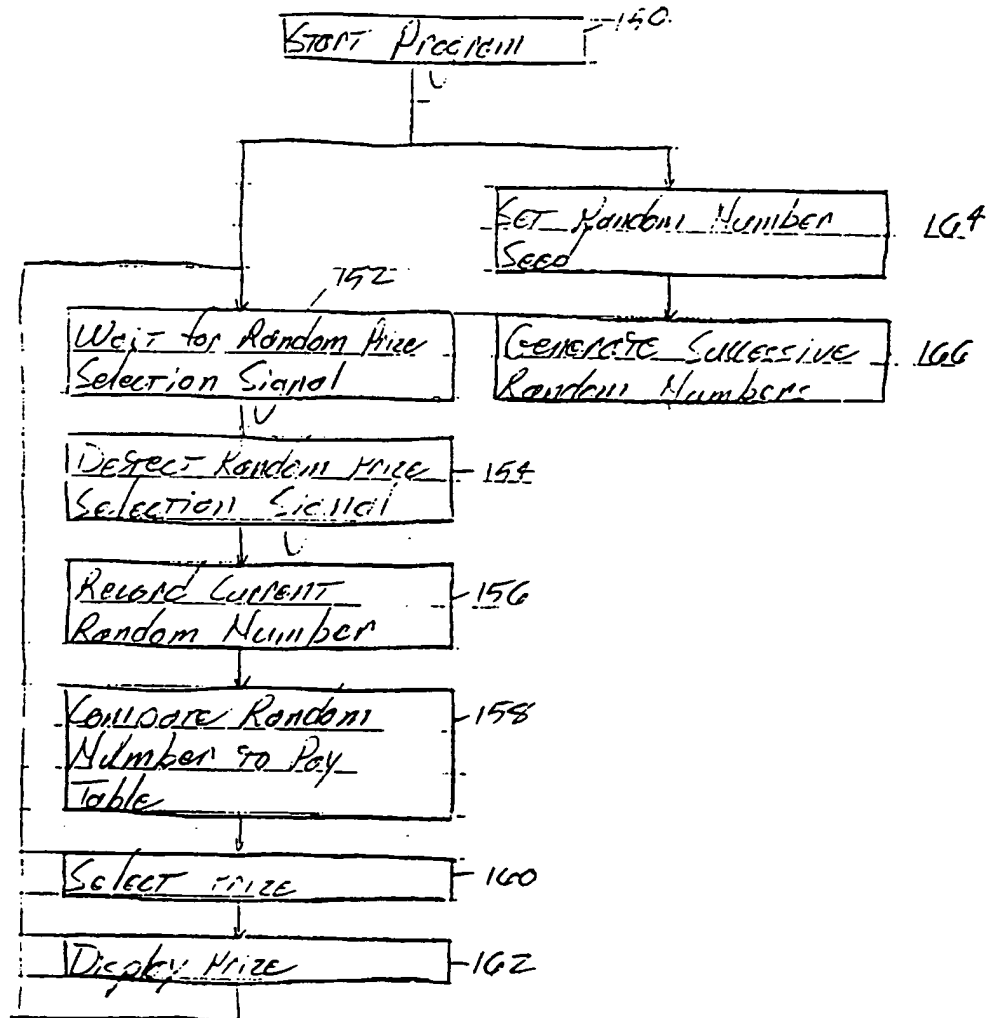 Start Program
150
Set Random Number
Seed
164
152
Wait for Random Prize
Selection Signal
Generate Successive
Random Numbers
166
Detect Random Prize
Selection Signal
154
Record Current
Random Number
156
Compare Random
Number to Pay
Table
158
Select Prize
160
Display Prize
162